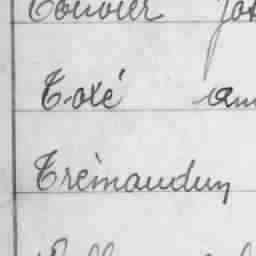 Touvier Jos
Toxé am
Trémaudun